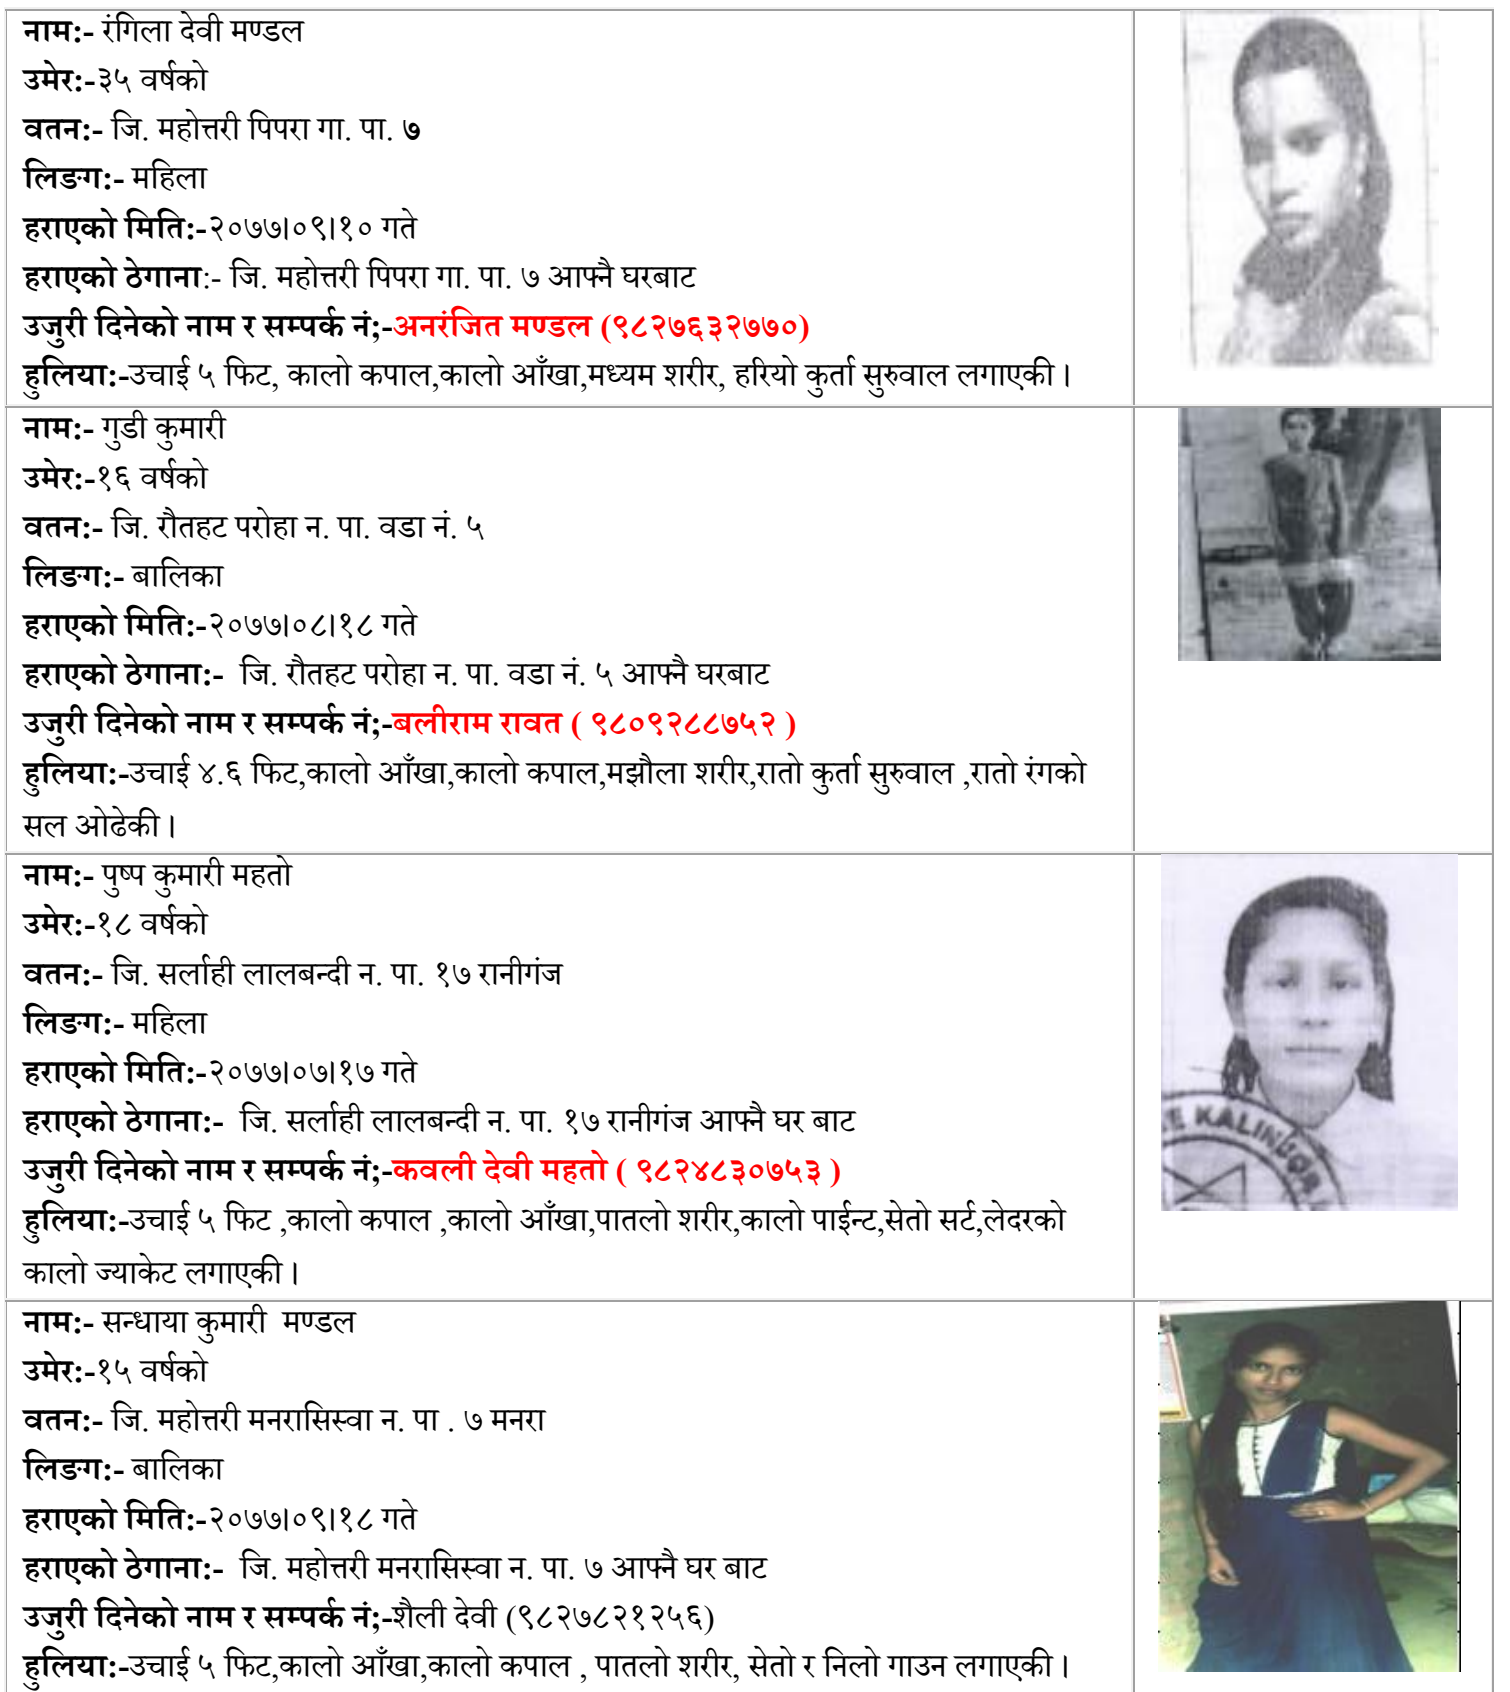 नाम:- रंगिला देवी मण्डल
उमेर:-३५ वर्षको
वतन:- जि. महोत्तरी पिपरा गा. पा. ७
लिङग:- महिला
हराएको मिति:-२०७७।०९।१० गते
हराएको ठेगाना:- जि. महोत्तरी पिपरा गा. पा. ७ आफ्नै घरबाट
उजुरी दिनेको नाम र सम्पर्क नं;-अनरंजित मण्डल (९८२७६३२७७०)
हुलिया:-उचाई ५ फिट, कालो कपाल,कालो आँखा,मध्यम शरीर, हरियो कुर्ता सुरुवाल लगाएकी ।
नाम:- गुडी कुमारी
उमेर:-१६ वर्षको
वतन:- जि. रौतहट परोहा न. पा. वडा नं. ५
लिङग:- बालिका
हराएको मिति:-२०७७।०८।१८ गते
हराएको ठेगाना:- जि. रौतहट परोहा न. पा. वडा नं. ५ आफ्नै घरबाट
उजुरी दिनेको नाम र सम्पर्क नं;-बलीराम रावत ( ९८०९२८८७५२ )
हुलिया:-उचाई ४.६ फिट,कालो आँखा,कालो कपाल,मझौला शरीर,रातो कुर्ता सुरुवाल ,रातो रंगको
सल ओढेकी ।
नाम:- पुष्प कुमारी महतो
उमेर:-१८ वर्षको
वतन:- जि. सर्लाही लालबन्दी न. पा. १७ रानीगंज
लिङग:- महिला
हराएको मिति:-२०७७।०७।१७ गते
हराएको ठेगाना:- जि. सर्लाही लालबन्दी न. पा. १७ रानीगंज आफ्नै घर बाट
उजुरी दिनेको नाम र सम्पर्क नं;-कवली देवी महतो ( ९८२४८३०७५३ )
हुलिया:-उचाई ५ फिट ,कालो कपाल ,कालो आँखा,पातलो शरीर,कालो पाईन्ट,सेतो सर्ट,लेदरको
कालो ज्याकेट लगाएकी ।
नाम:- सन्धाया कुमारी मण्डल
उमेर:-१५ वर्षको
वतन:- जि. महोत्तरी मनरासिस्वा न. पा . ७ मनरा
लिङग:- बालिका
हराएको मिति:-२०७७।०९।१८ गते
हराएको ठेगाना:- जि. महोत्तरी मनरासिस्वा न. पा. ७ आफ्नै घर बाट
उजुरी दिनेको नाम र सम्पर्क नं;-शैली देवी (९८२७८२१२५६)
हुलिया:-उचाई ५ फिट,कालो आँखा,कालो कपाल , पातलो शरीर, सेतो र निलो गाउन लगाएकी ।